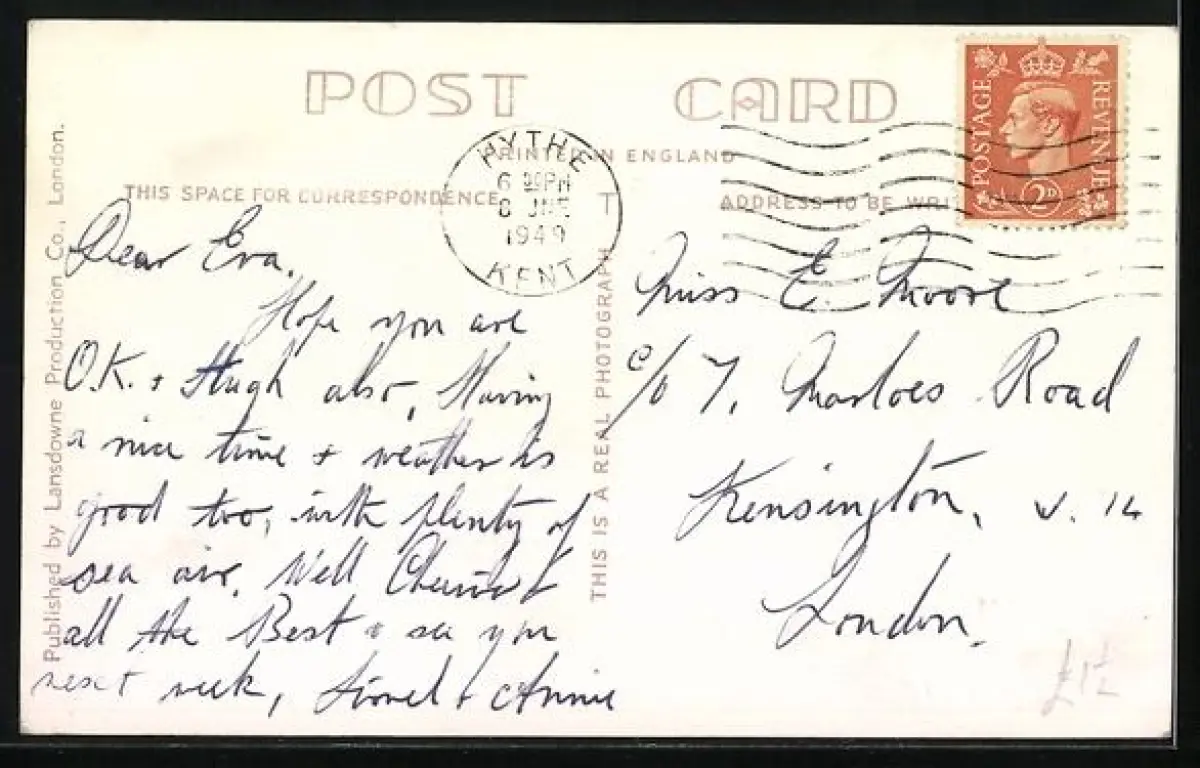 POST CARD
PRINTED IN ENGLAND
THIS SPACE FOR CORRESPONDENCE
ADDRESS TO BE WRI
HYTHE
6 30PM
8 JNE
1949
KENT
POSTAGE REVENUE
2D
Published by Lansdowne Production Co., London.
THIS IS A REAL PHOTOGRAPH
Dear Eva,
Hope you are
O.K. + Hugh also, Having
a nice time + weather is
good too, with plenty of
sea air. Well Cheerio +
all the Best + see you
next week, Lionel + Annie
Miss E. Moore
c/o 7, Marloes Road
Kensington, W. 14
London.
£1½